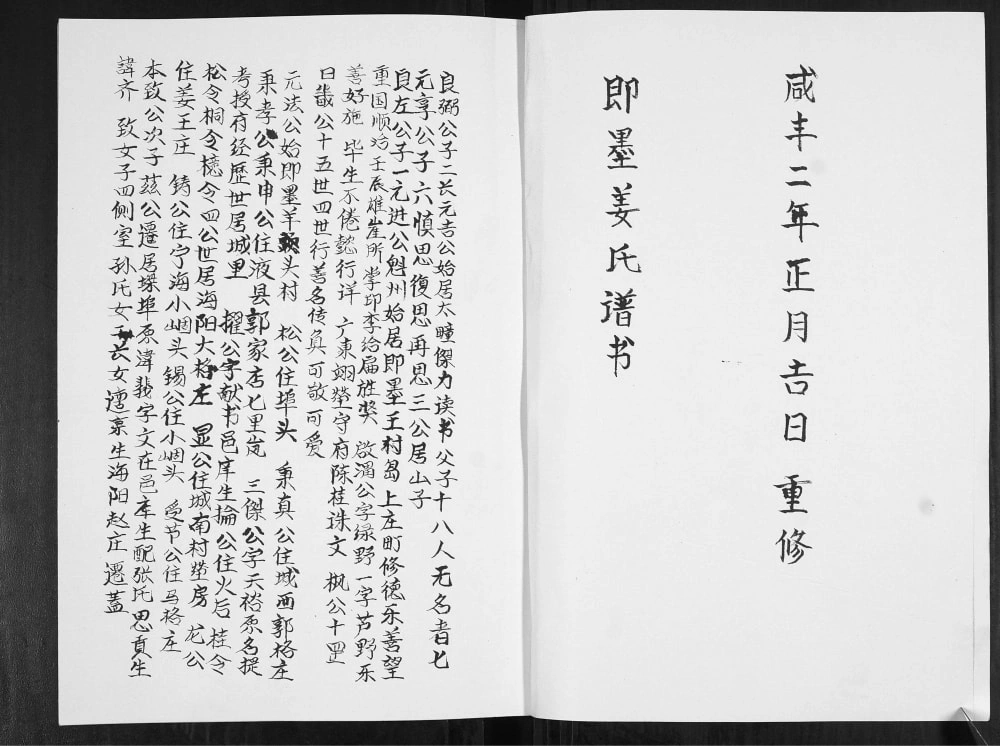 咸丰二年正月吉日 重修
即墨姜氏谱书
良弼公子二长元吉公始居太疃傑力读书父子十八人无名者七
元享公子六慎思復思再思三公居山子
良左公子一元进公魁州始居即墨王村岛上庄町修德乐善望
重国顺治壬辰雄崖所掌印李给扁旌奖 啟渭公字绿野一字芦野乐
善好施 毕生不倦懿行详 广东翊茔守府陈桂珠文 枫公十四
日歲公十五世四世行善名传真可敬可爱
元法公始即墨羊头村 松公住埠头 秉真公住城西郭格庄
秉孝公秉申公住液县郭家店七里岚 三傑公字天裕原名提
考授府经歷世居城里 擢公字献书邑庠生掄公住火后 桂令
松令桐令櫶令四公世居海阳大格庄 显公住城南村茔房 龙公
住姜王庄 铸公住宁海小崓头锡公住小崓头 受节公住马格庄
本致公次子兹公遷居埠原諱裴字文在邑庠生配张氏思貢生
諱齐 致女子四侧室孙氏女子长女稟生海阳赵庄遷蓋